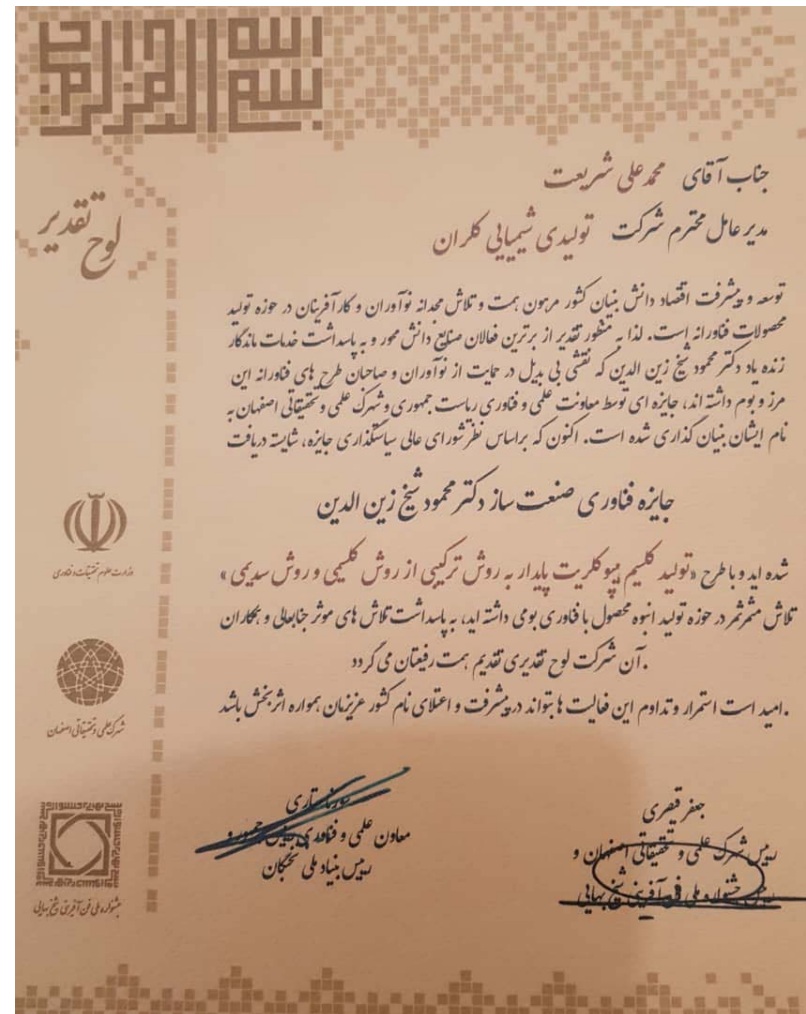 بسم الله الرحمن الرحیم
لوح تقدیر
جناب آقای محمدعلی شریعت
مدیرعامل محترم شرکت تولیدی شیمیایی کلران
توسعه و پیشرفت اقتصاد دانش بنیان کشور مرهون همت و تلاش مجدانه نوآوران و کارآفرینان در حوزه تولید
محصولات فناورانه است. لذا به منظور تقدیر از برترین فعالان صنایع دانش محور و به پاسداشت خدمات ماندگار
زنده یاد دکتر محمود شیخ زین الدین که نقشی بی بدیل در حمایت از نوآوران و صاحبان طرح های فناورانه این
مرز و بوم داشته اند، جایزه ای توسط معاونت علمی و فناوری ریاست جمهوری و شهرک علمی و تحقیقاتی اصفهان به
نام ایشان بنیان گذاری شده است. اکنون که براساس نظر شورای عالی سیاستگذاری جایزه، شایسته دریافت
جایزه فناوری صنعت ساز دکتر محمود شیخ زین الدین
شده اید و با طرح «تولید کلسیم هیپوکلریت پایدار به روش ترکیبی از روش کلسیمی و روش سدیمی»
تلاش مثمرثمر در حوزه تولید انبوه محصول با فناوری بومی داشته اید، به پاسداشت تلاش های موثر جنابعالی و همکاران
.آن شرکت لوح تقدیری تقدیم همت رفیعتان می گردد
.امید است استمرار و تداوم این فعالیت ها بتواند در پیشرفت و اعتلای نام کشور عزیزمان همواره اثربخش باشد
جعفر قیصری
رییس شهرک علمی و تحقیقاتی اصفهان و
رییس جشنواره ملی فن آفرینی شیخ بهایی
سورنا ستاری
معاون علمی و فناوری رییس جمهور و
رییس بنیاد ملی نخبگان
وزارت علوم تحقیقات و فناوری
شهرک علمی و تحقیقاتی اصفهان
جشنواره ملی فن آفرینی شیخ بهایی